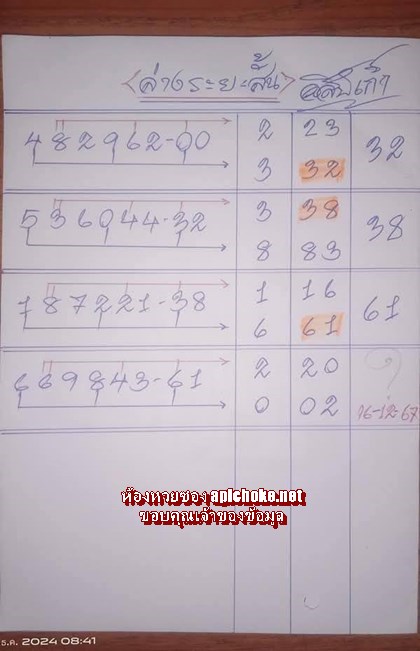 <ล่างระยะสั้น>
482962-00 2 23 32
3 32
536044-32 3 38 38
8 83
187221-38 1 16 61
6 61
669843-61 2 20 ?
0 02 16-12-67
ห้องหวยซอง apichoke.net
ขอบคุณเจ้าของข้อมูล
ธ.ค. 2024 08:41